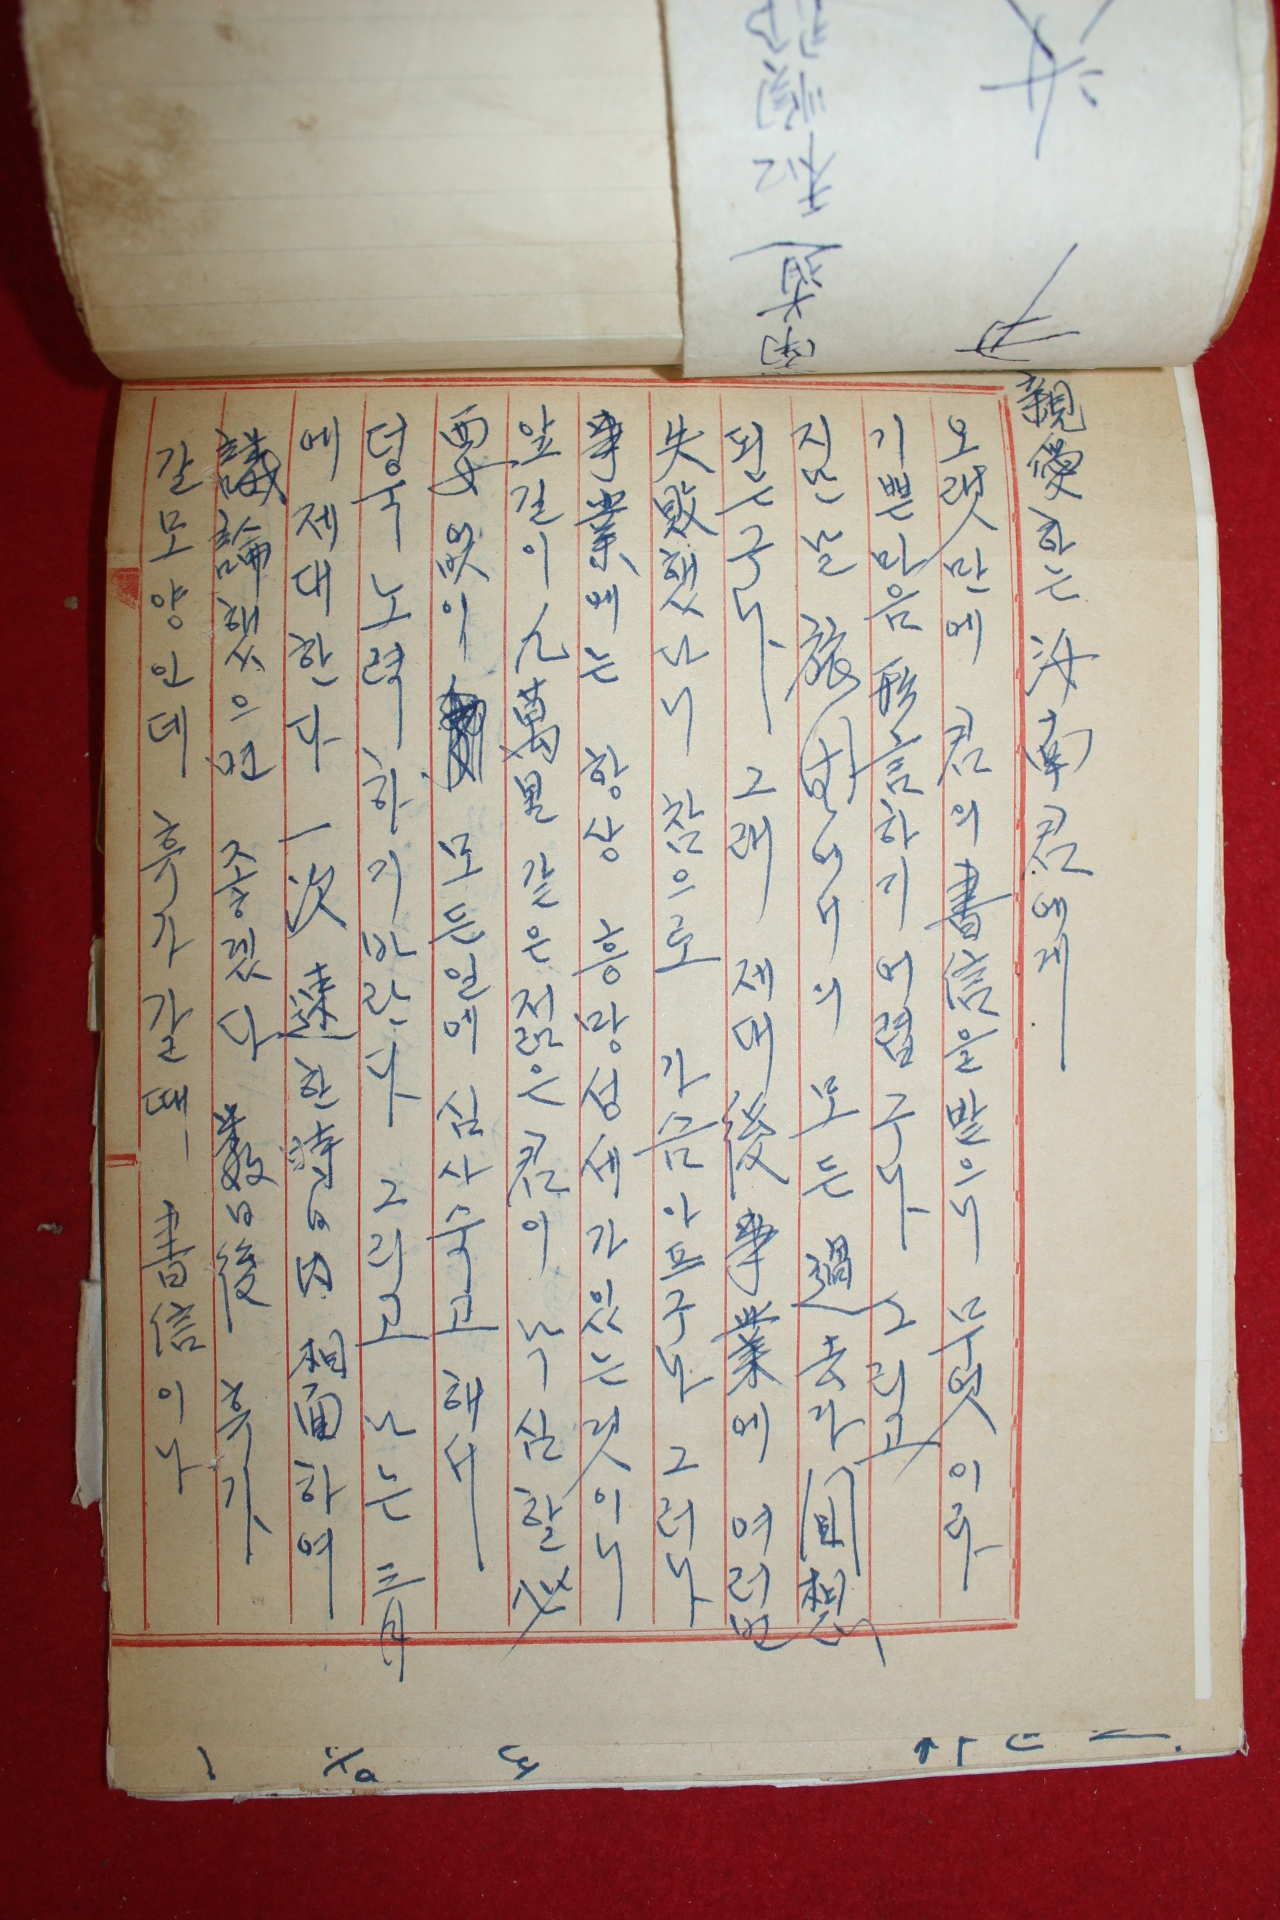 親愛하는 汝南君에게
오랫만에 君의 書信을 받으니 무엇이라
기쁜마음 形言하기 어렵구나 그리고
지난날 旅방에서의 모든 過去가 回想
된는구나. 그래 제대後 事業에 여러번
失敗했다니 참으로 가금아프구나 그러나
事業에는 항상 흥망성세가있는것이니
앞길이 九萬里 같은 젊은君이 낙심할 必
要없이 모든일에 심사숙고 해서
덩욱 노력하기바란다 그리고 나는 三月
에 제대한다 一次 速한時日內 相面하여
議論했으면 좋겠다 數日後 휴가
갈모양인데 휴가갈때 書信이나